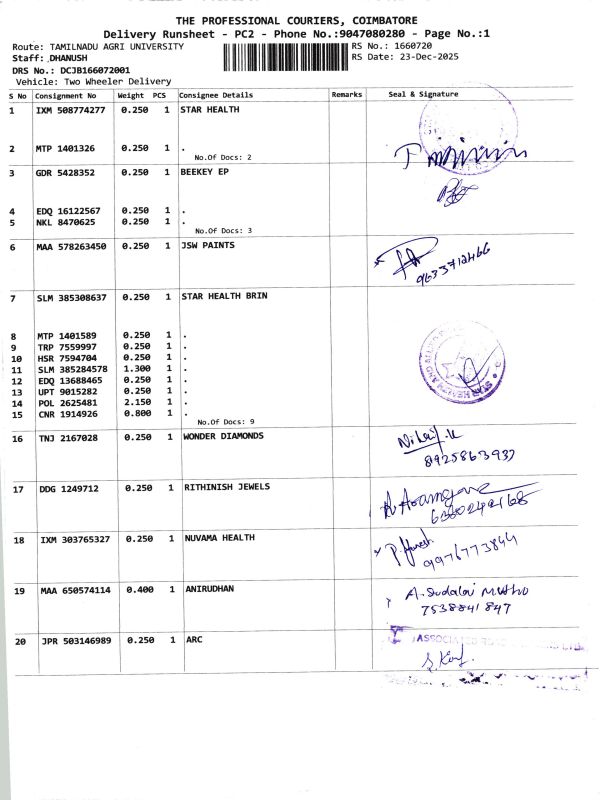 THE PROFESSIONAL COURIERS, COIMBATORE
Delivery Runsheet - PC2 - Phone No.:9047080280 - Page No.:1
Route: TAMILNADU AGRI UNIVERSITY
RS No.: 1660720
Staff: .DHANUSH
RS Date: 23-Dec-2025
DRS No.: DCJB166072001
Vehicle: Two Wheeler Delivery
S No Consignment No Weight PCS Consignee Details Remarks Seal & Signature
1 IXM 508774277 0.250 1 STAR HEALTH
2 MTP 1401326 0.250 1 .
No.Of Docs: 2
3 GDR 5428352 0.250 1 BEEKEY EP
4 EDQ 16122567 0.250 1 .
5 NKL 8470625 0.250 1 .
No.Of Docs: 3
6 MAA 578263450 0.250 1 JSW PAINTS
9633712466
7 SLM 385308637 0.250 1 STAR HEALTH BRIN
8 MTP 1401589 0.250 1 .
9 TRP 7559997 0.250 1 .
10 HSR 7594704 0.250 1 .
11 SLM 385284578 1.300 1 .
12 EDQ 13688465 0.250 1 .
13 UPT 9015282 0.250 1 .
14 POL 2625481 2.150 1 .
15 CNR 1914926 0.800 1 .
No.Of Docs: 9
STAR HEALTH AND
16 TNJ 2167028 0.250 1 WONDER DIAMONDS
8925863937
17 DDG 1249712 0.250 1 RITHINISH JEWELS
18 IXM 303765327 0.250 1 NUVAMA HEALTH
9976773844
19 MAA 650574114 0.400 1 ANIRUDHAN
A. Sudalai Muthu
7538841847
20 JPR 503146989 0.250 1 ARC
ASSOCIATED ROAD